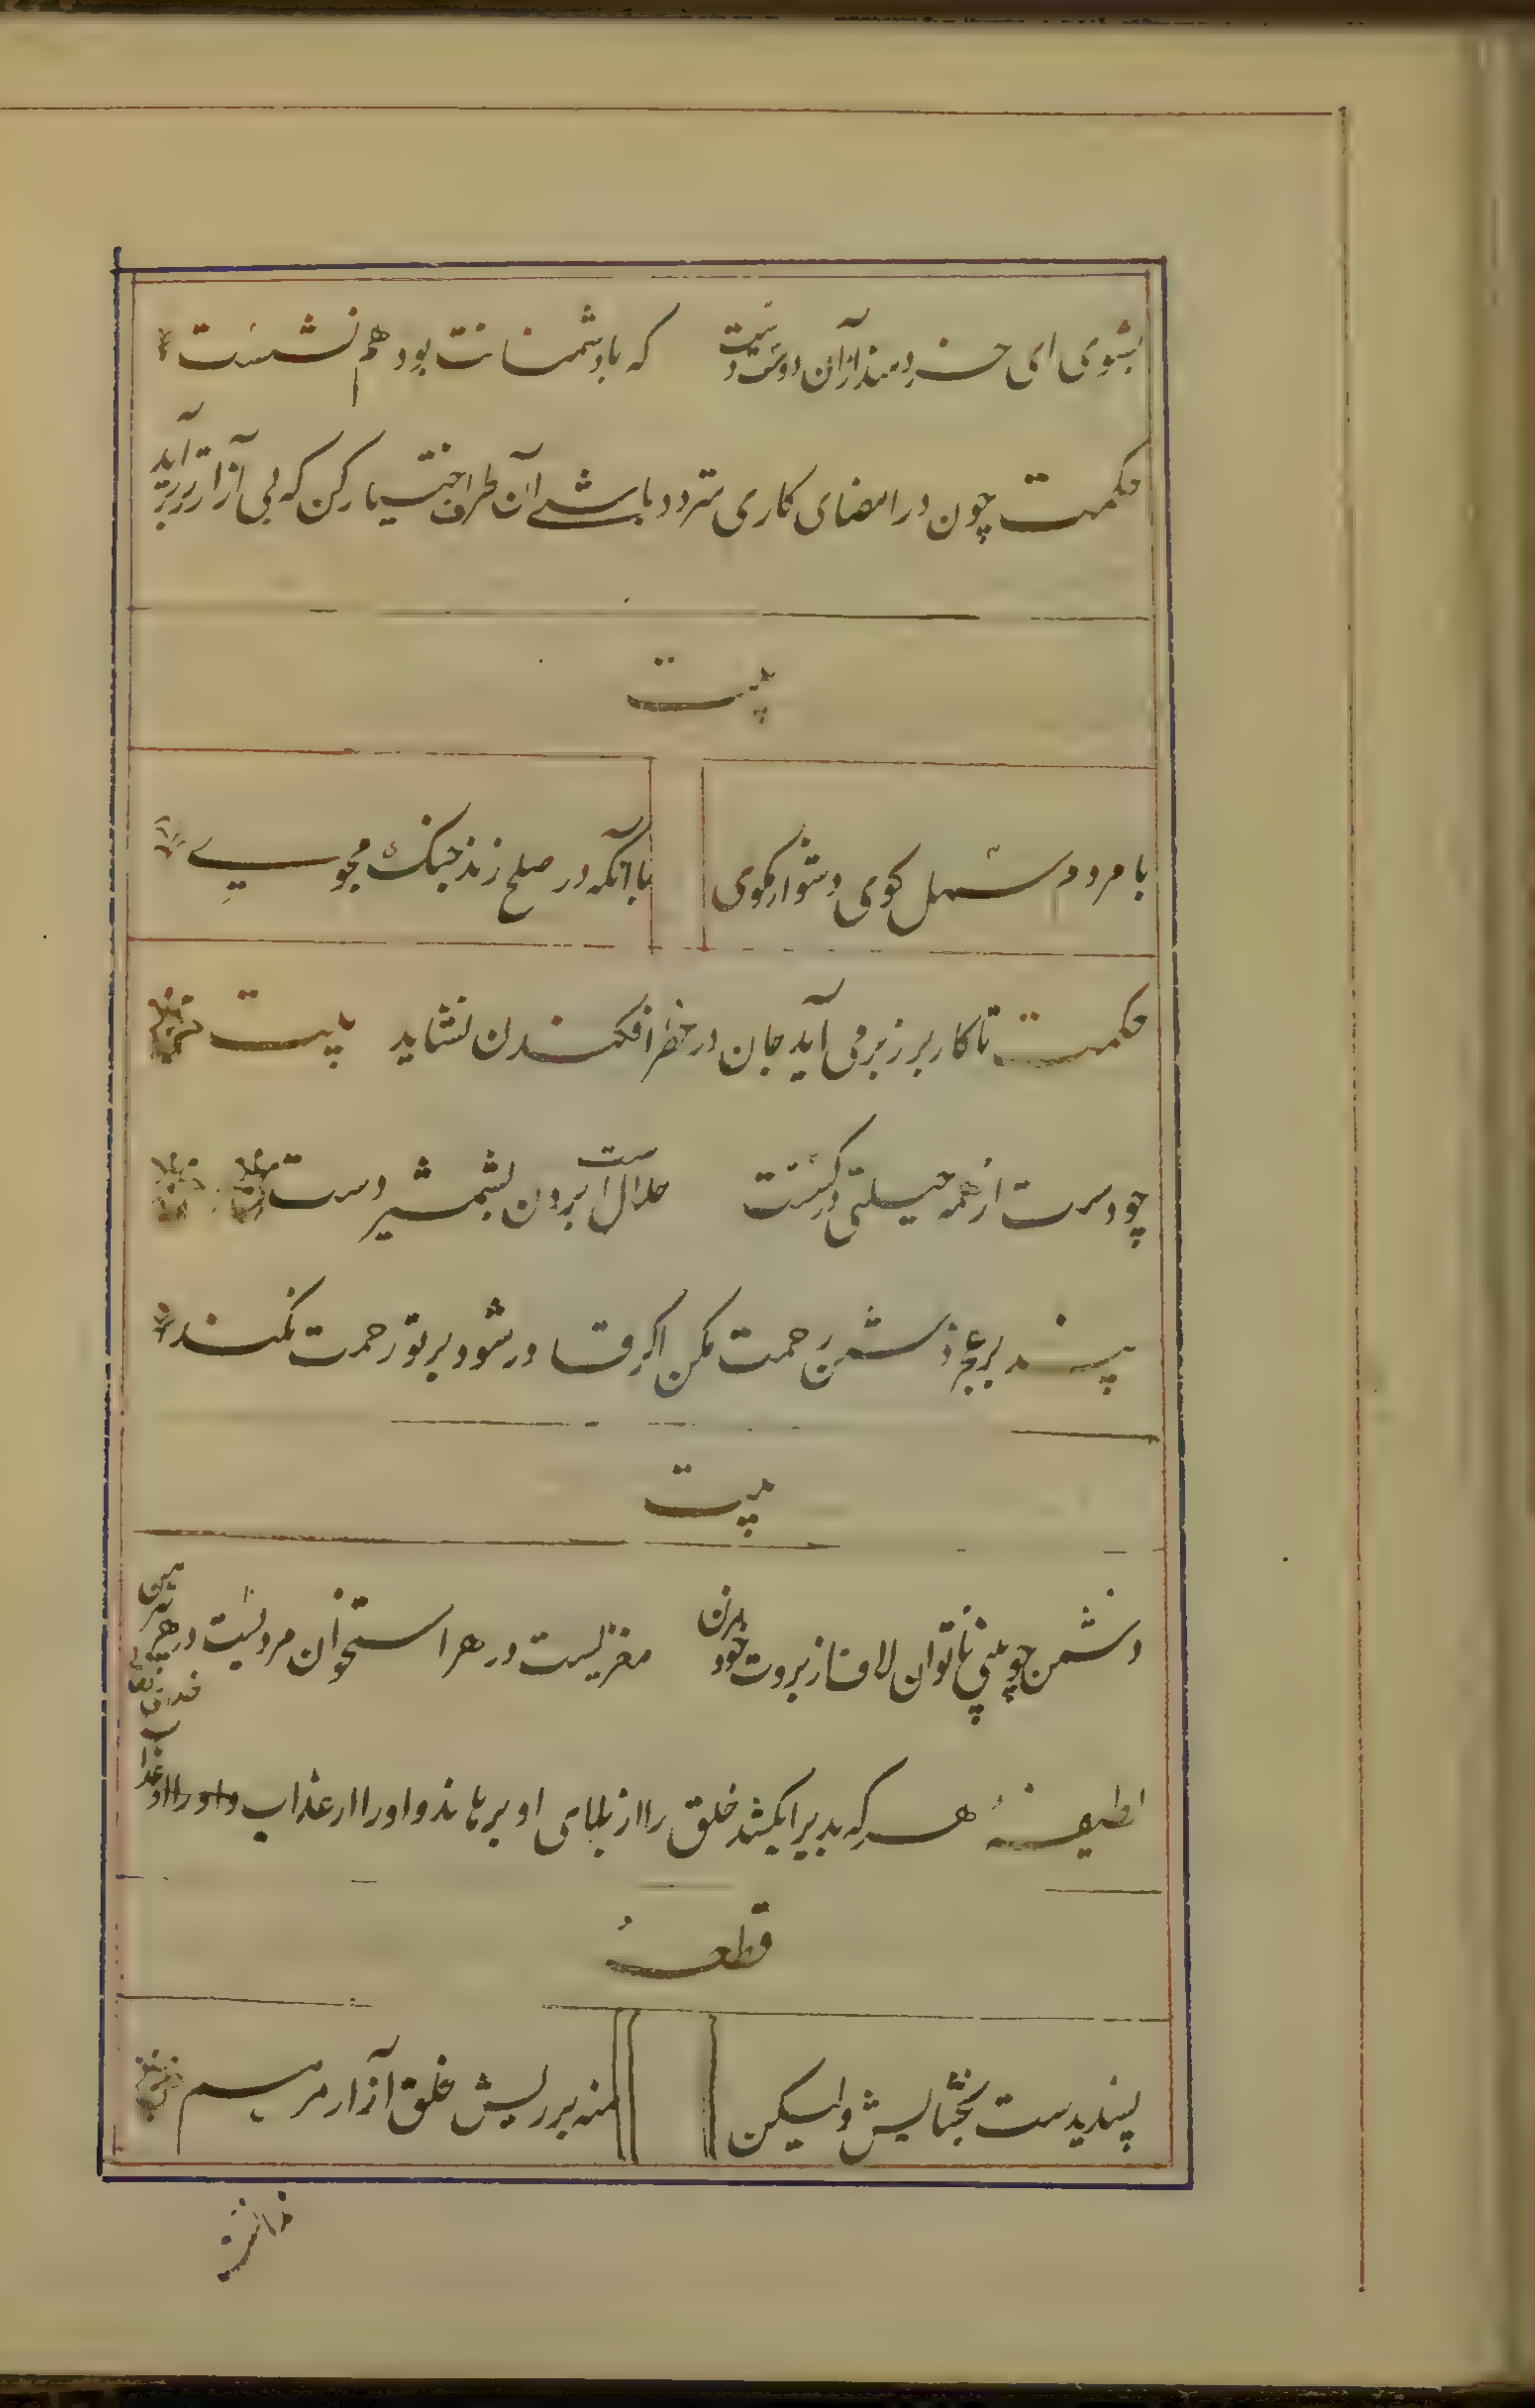 بشوی ای خردمند ازان دوست دست که با دشمنانت بود هم نشست
حکمت چون در امضای کاری متردد باشی آن طرف اختیار کن که بی آزارتر برآید
بیت
با مردم سهل کوی دشوار مکوی با آنکه در صلح زند جنک مجوی
حکمت تا کار بر زر برمی آید جان در خطر افکندن نشاید بیت
چو دست از همه حیلتی درکسست حلال است بردن بشمشیر دست
پند بر عجز دشمن رحمت مکن اکر قادر شود بر تو رحمت نکند
بیت
دشمن چو بینی ناتوان لاف از بروت خود مزن مغزیست در هر استخوان مردیست در هر پیرهن
لطیفه هر که بدیرا بکشد خلق را از بلای او برهاند و اورا از عذاب
قطعه
پسندیدست بخشایش ولیکن منه بر ریش خلق آزار مرهم